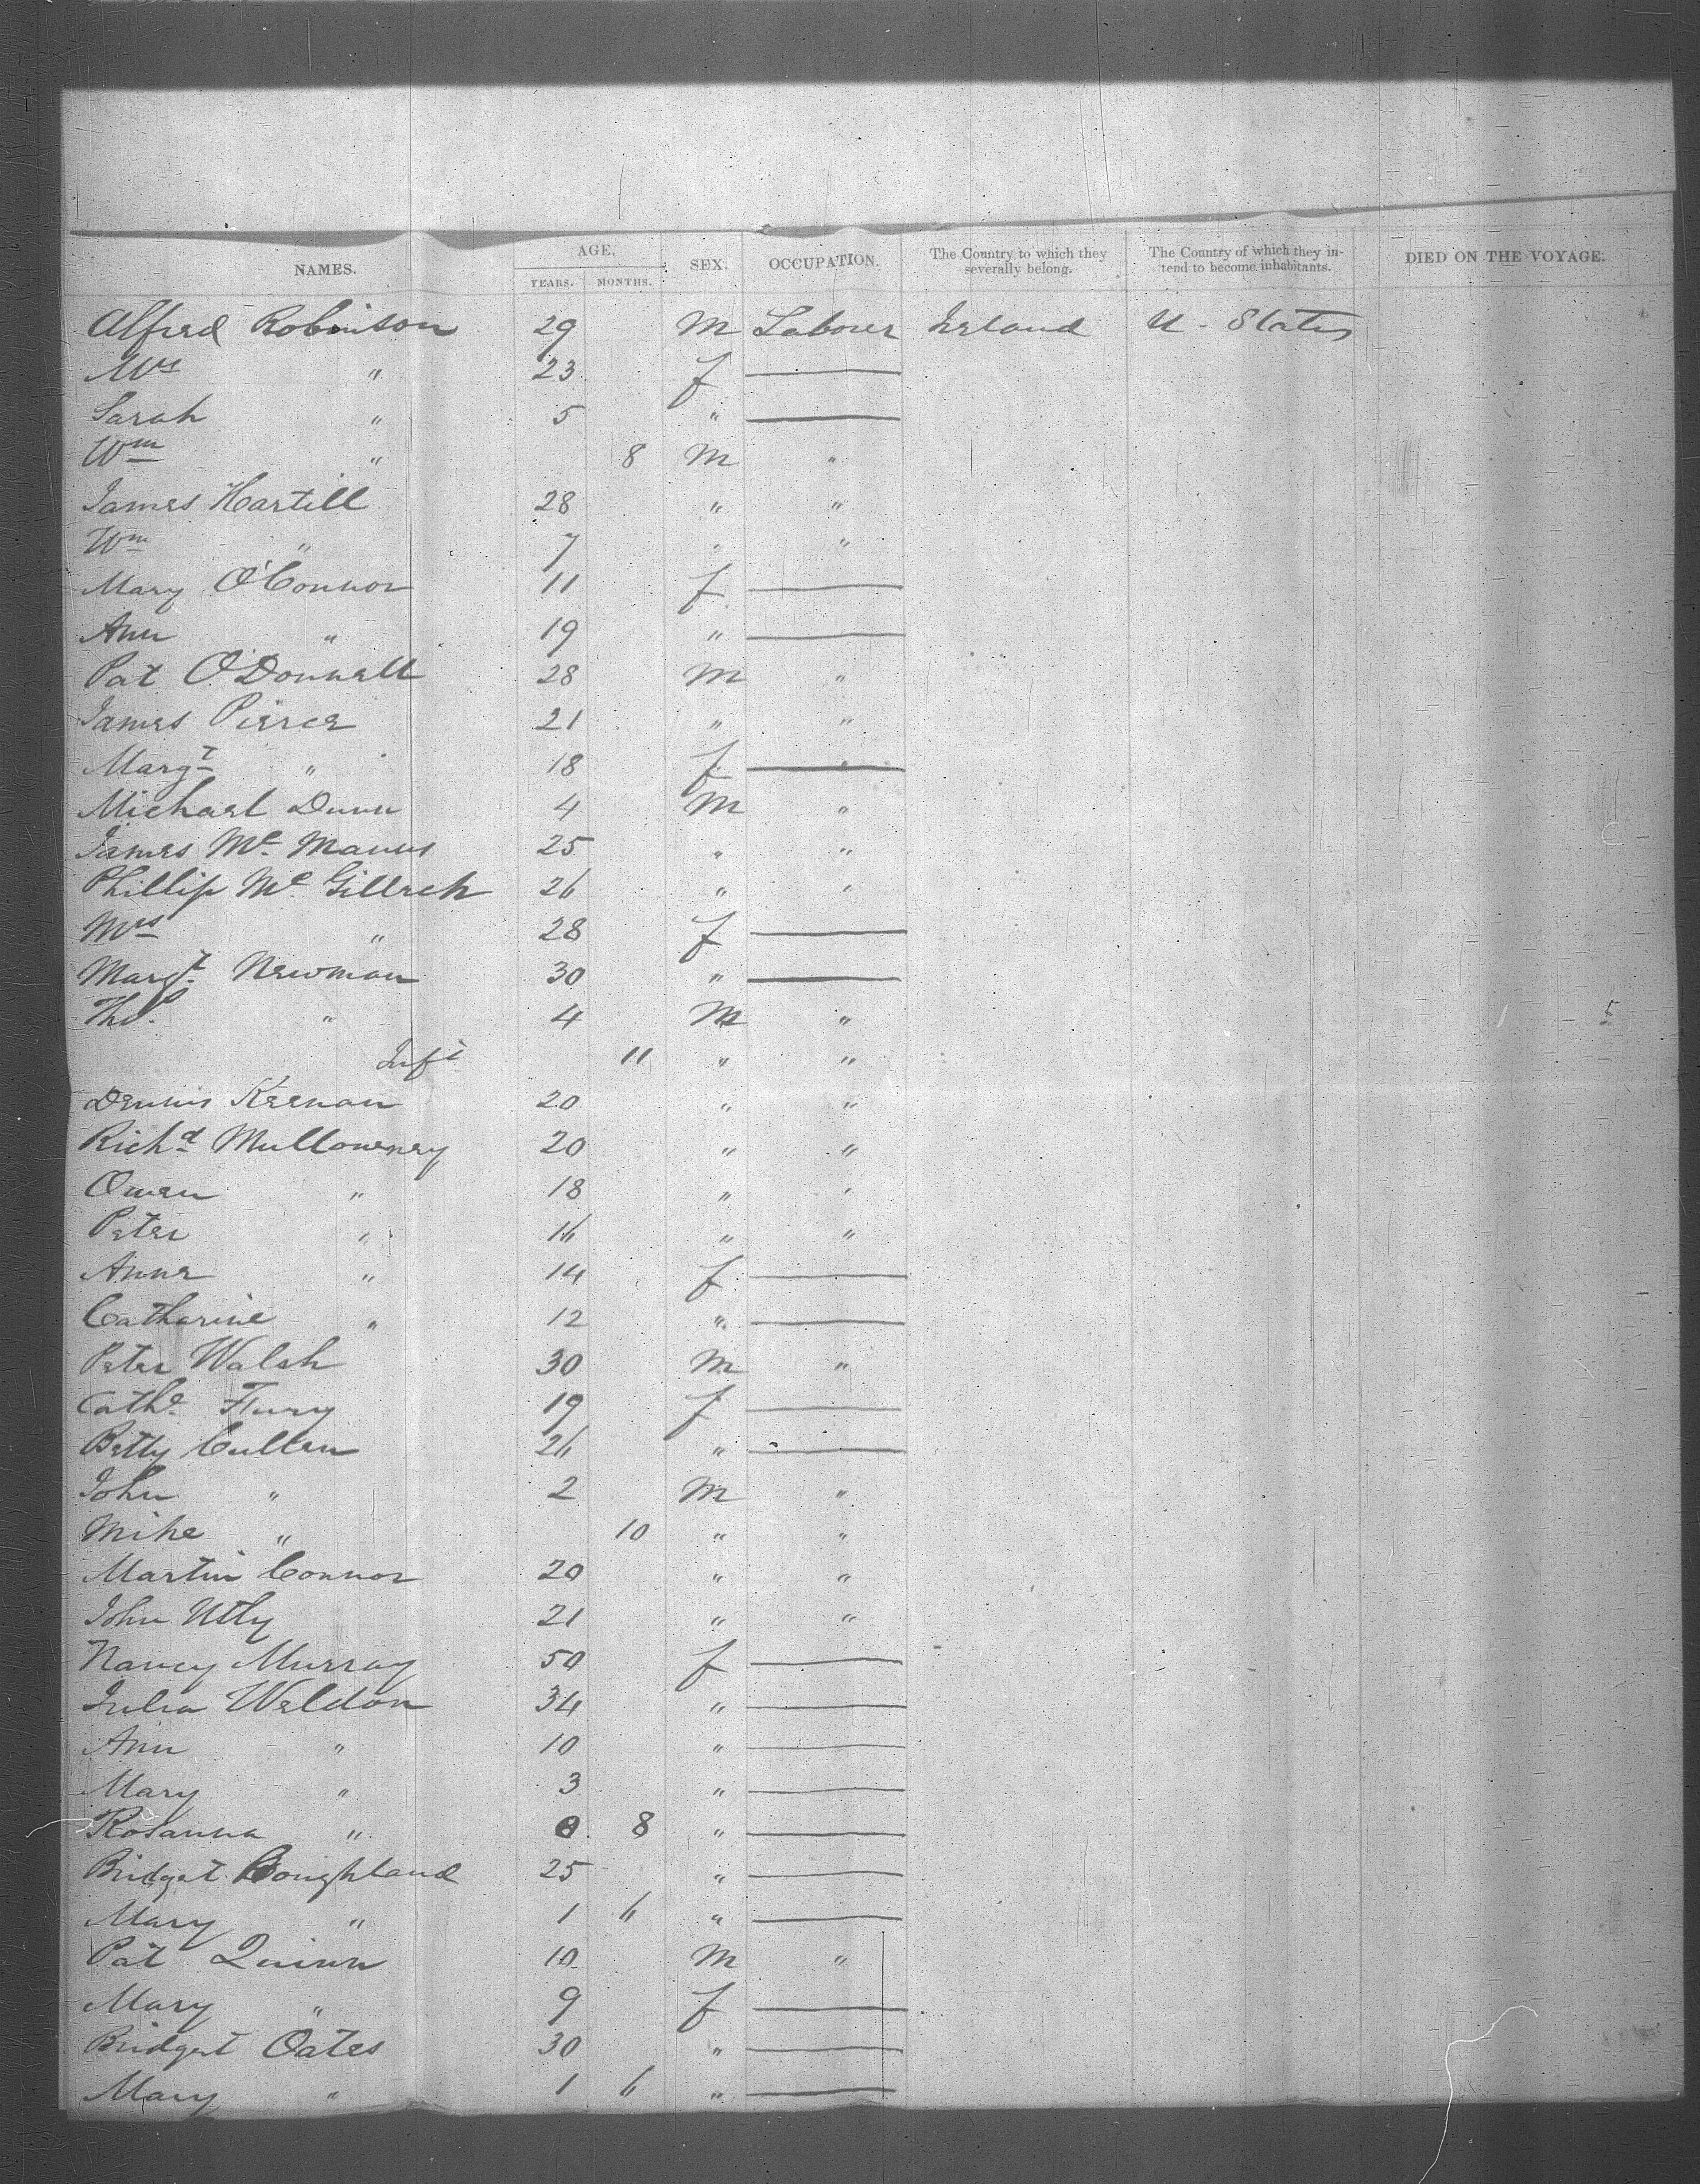 NAMES. AGE. YEARS. MONTHS. SEX. OCCUPATION. The Country to which they severally belong. The Country of which they intend to become inhabitants. DIED ON THE VOYAGE.
Alfred Robinson 29 M Laborer Ireland U. States
Mrs " 23 f ——
Sarah " 5 " ——
Wm " 8 M "
James Hartill 28 " "
Wm " 7 " "
Mary O'Connor 11 f ——
Ann " 19 " ——
Pat O'Donnell 28 M "
James Pierce 21 " "
Margt " 18 f ——
Michael Dunn 4 M "
James Mc Manus 25 " "
Phillip Mc Gillrek 26 " "
Mrs " 28 f ——
Margt. Newman 30 " ——
Tho. " 4 M "
Inft 11 " "
Dennis Keenan 20 " "
Richd Mullowney 20 " "
Owen " 18 " "
Peter " 16 " "
Anne " 14 f ——
Catharine " 12 " ——
Peter Walsh 30 M "
Cathe Flury 19 f ——
Betty Cullen 26 " ——
John " 2 M "
Mike " 10 " "
Martin Connor 20 " "
John Utly 21 " "
Nancy Murray 50 f ——
Julia Weldon 34 " ——
Ann " 10 " ——
Mary " 3 " ——
Rosanna " 8 " ——
Bridget Coughland 25 " ——
Mary " 1 6 " ——
Pat Quinn 10 M "
Mary " 9 f ——
Bridget Oates 30 " ——
Mary " 1 6 " ——